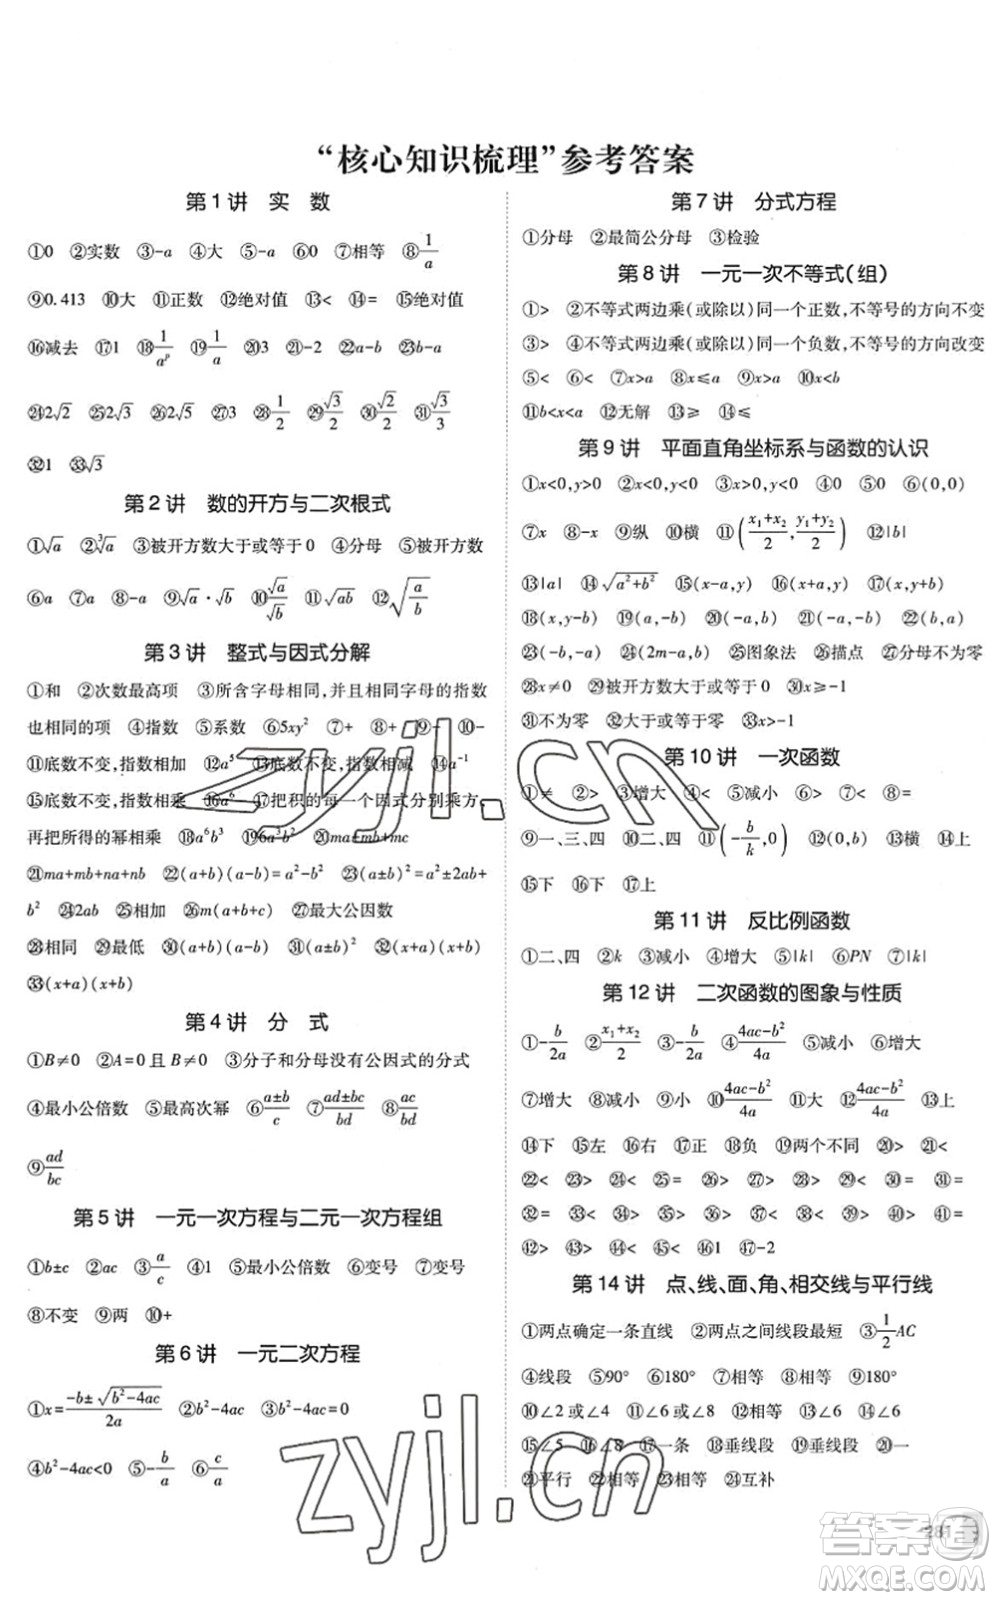 “核心知识梳理”参考答案
第 1 讲　实　数
①0　②实数　③-a　④大　⑤-a　⑥0　⑦相等　⑧1/a
⑨0.413　⑩大　⑪正数　⑫绝对值　⑬<　⑭=　⑮绝对值
⑯减去　⑰1　⑱1/a^p　⑲1/a　⑳3　㉑-2　㉒a-b　㉓√2
㉔2√2　㉕2√3　㉖2√5　㉗3　㉘1/2　㉙√3/2　㉚√2/2　㉛√3/3
㉜1　㉝√3
第 2 讲　数的开方与二次根式
①√a　②∛a　③被开方数大于或等于 0　④分母　⑤被开方数
⑥a　⑦a　⑧-a　⑨√a·√b　⑩√a/√b　⑪√ab　⑫√(a/b)
第 3 讲　整式与因式分解
①和　②次数最高项　③所含字母相同,并且相同字母的指数
也相同的项　④指数　⑤系数　⑥5xy²　⑦+　⑧+　⑨-　⑩-
⑪底数不变,指数相加　⑫a⁵　⑬底数不变,指数相减　⑭a⁻¹
⑮底数不变,指数相乘　⑯a⁶　⑰把积的每一个因式分别乘方,
再把所得的幂相乘　⑱a⁶b³　⑲6a³b²　⑳ma+mb+mc
㉑ma+mb+na+nb　㉒(a+b)(a-b)=a²-b²　㉓(a±b)²=a²±2ab+
b²　㉔2ab　㉕相加　㉖m(a+b+c)　㉗最大公因数
㉘相同　㉙最低　㉚(a+b)(a-b)　㉛(a±b)²　㉜(x+a)(x+b)
㉝(x+a)(x+b)
第 4 讲　分　式
①B≠0　②A=0 且 B≠0　③分子和分母没有公因式的分式
④最小公倍数　⑤最高次幂　⑥(a±b)/c　⑦(ad±bc)/bd　⑧ac/bd
⑨ad/bc
第 5 讲　一元一次方程与二元一次方程组
①b±c　②ac　③a/c　④1　⑤最小公倍数　⑥变号　⑦变号
⑧不变　⑨两　⑩+
第 6 讲　一元二次方程
①x=(-b±√(b²-4ac))/2a　②b²-4ac　③b²-4ac=0
④b²-4ac<0　⑤-b/a　⑥c/a
第 7 讲　分式方程
①分母　②最简公分母　③检验
第 8 讲　一元一次不等式(组)
①>　②不等式两边乘(或除以)同一个正数,不等号的方向不变
③>　④不等式两边乘(或除以)同一个负数,不等号的方向改变
⑤<　⑥<　⑦x>a　⑧x≤a　⑨x>a　⑩x<b
⑪b<x<a　⑫无解　⑬≥　⑭≤
第 9 讲　平面直角坐标系与函数的认识
①x<0,y>0　②x<0,y<0　③x>0,y<0　④0　⑤0　⑥(0,0)
⑦x　⑧-x　⑨纵　⑩横　⑪((x₁+x₂)/2,(y₁+y₂)/2)　⑫|b|
⑬|a|　⑭√(a²+b²)　⑮(x-a,y)　⑯(x+a,y)　⑰(x,y+b)
⑱(x,y-b)　⑲(a,-b)　⑳(-a,b)　㉑(-a,-b)　㉒(b,a)
㉓(-b,-a)　㉔(2m-a,b)　㉕图象法　㉖描点　㉗分母不为零
㉘x≠0　㉙被开方数大于或等于零　㉚x≥-1
㉛不为零　㉜大于或等于零　㉝x>-1
第 10 讲　一次函数
①≠　②=　③增大　④<　⑤减小　⑥>　⑦<　⑧=
⑨一、三、四　⑩二、四　⑪(-b/k,0)　⑫(0,b)　⑬横　⑭上
⑮下　⑯下　⑰上
第 11 讲　反比例函数
①二、四　②k　③减小　④增大　⑤|k|　⑥PN　⑦|k|
第 12 讲　二次函数的图象与性质
①-b/2a　②(x₁+x₂)/2　③-b/2a　④(4ac-b²)/4a　⑤减小　⑥增大
⑦增大　⑧减小　⑨小　⑩(4ac-b²)/4a　⑪大　⑫(4ac-b²)/4a　⑬上
⑭下　⑮左　⑯右　⑰正　⑱负　⑲两个不同　⑳>　㉑<
㉒<　㉓<　㉔<　㉕>　㉖>　㉗>　㉘<　㉙<　㉚=　㉛=
㉜=　㉝>　㉞<　㉟>　㊱>　㊲<　㊳>　㊴<　㊵>　㊶=
㊷>　㊸>　㊹<　㊺>　㊻1　㊼-2
第 14 讲　点、线、面、角、相交线与平行线
①两点确定一条直线　②两点之间线段最短　③1/2 AC
④线段　⑤90°　⑥180°　⑦相等　⑧相等　⑨180°
⑩∠2　⑪∠4　⑫∠7　⑬∠6　⑭∠8
⑮∠5　⑯∠8　⑰一条　⑱垂线段　⑲垂线段　⑳一
㉑平行　㉒相等　㉓相等　㉔互补
zyjl.cn
zyjl.cn
281
答案圈
MXQE.COM